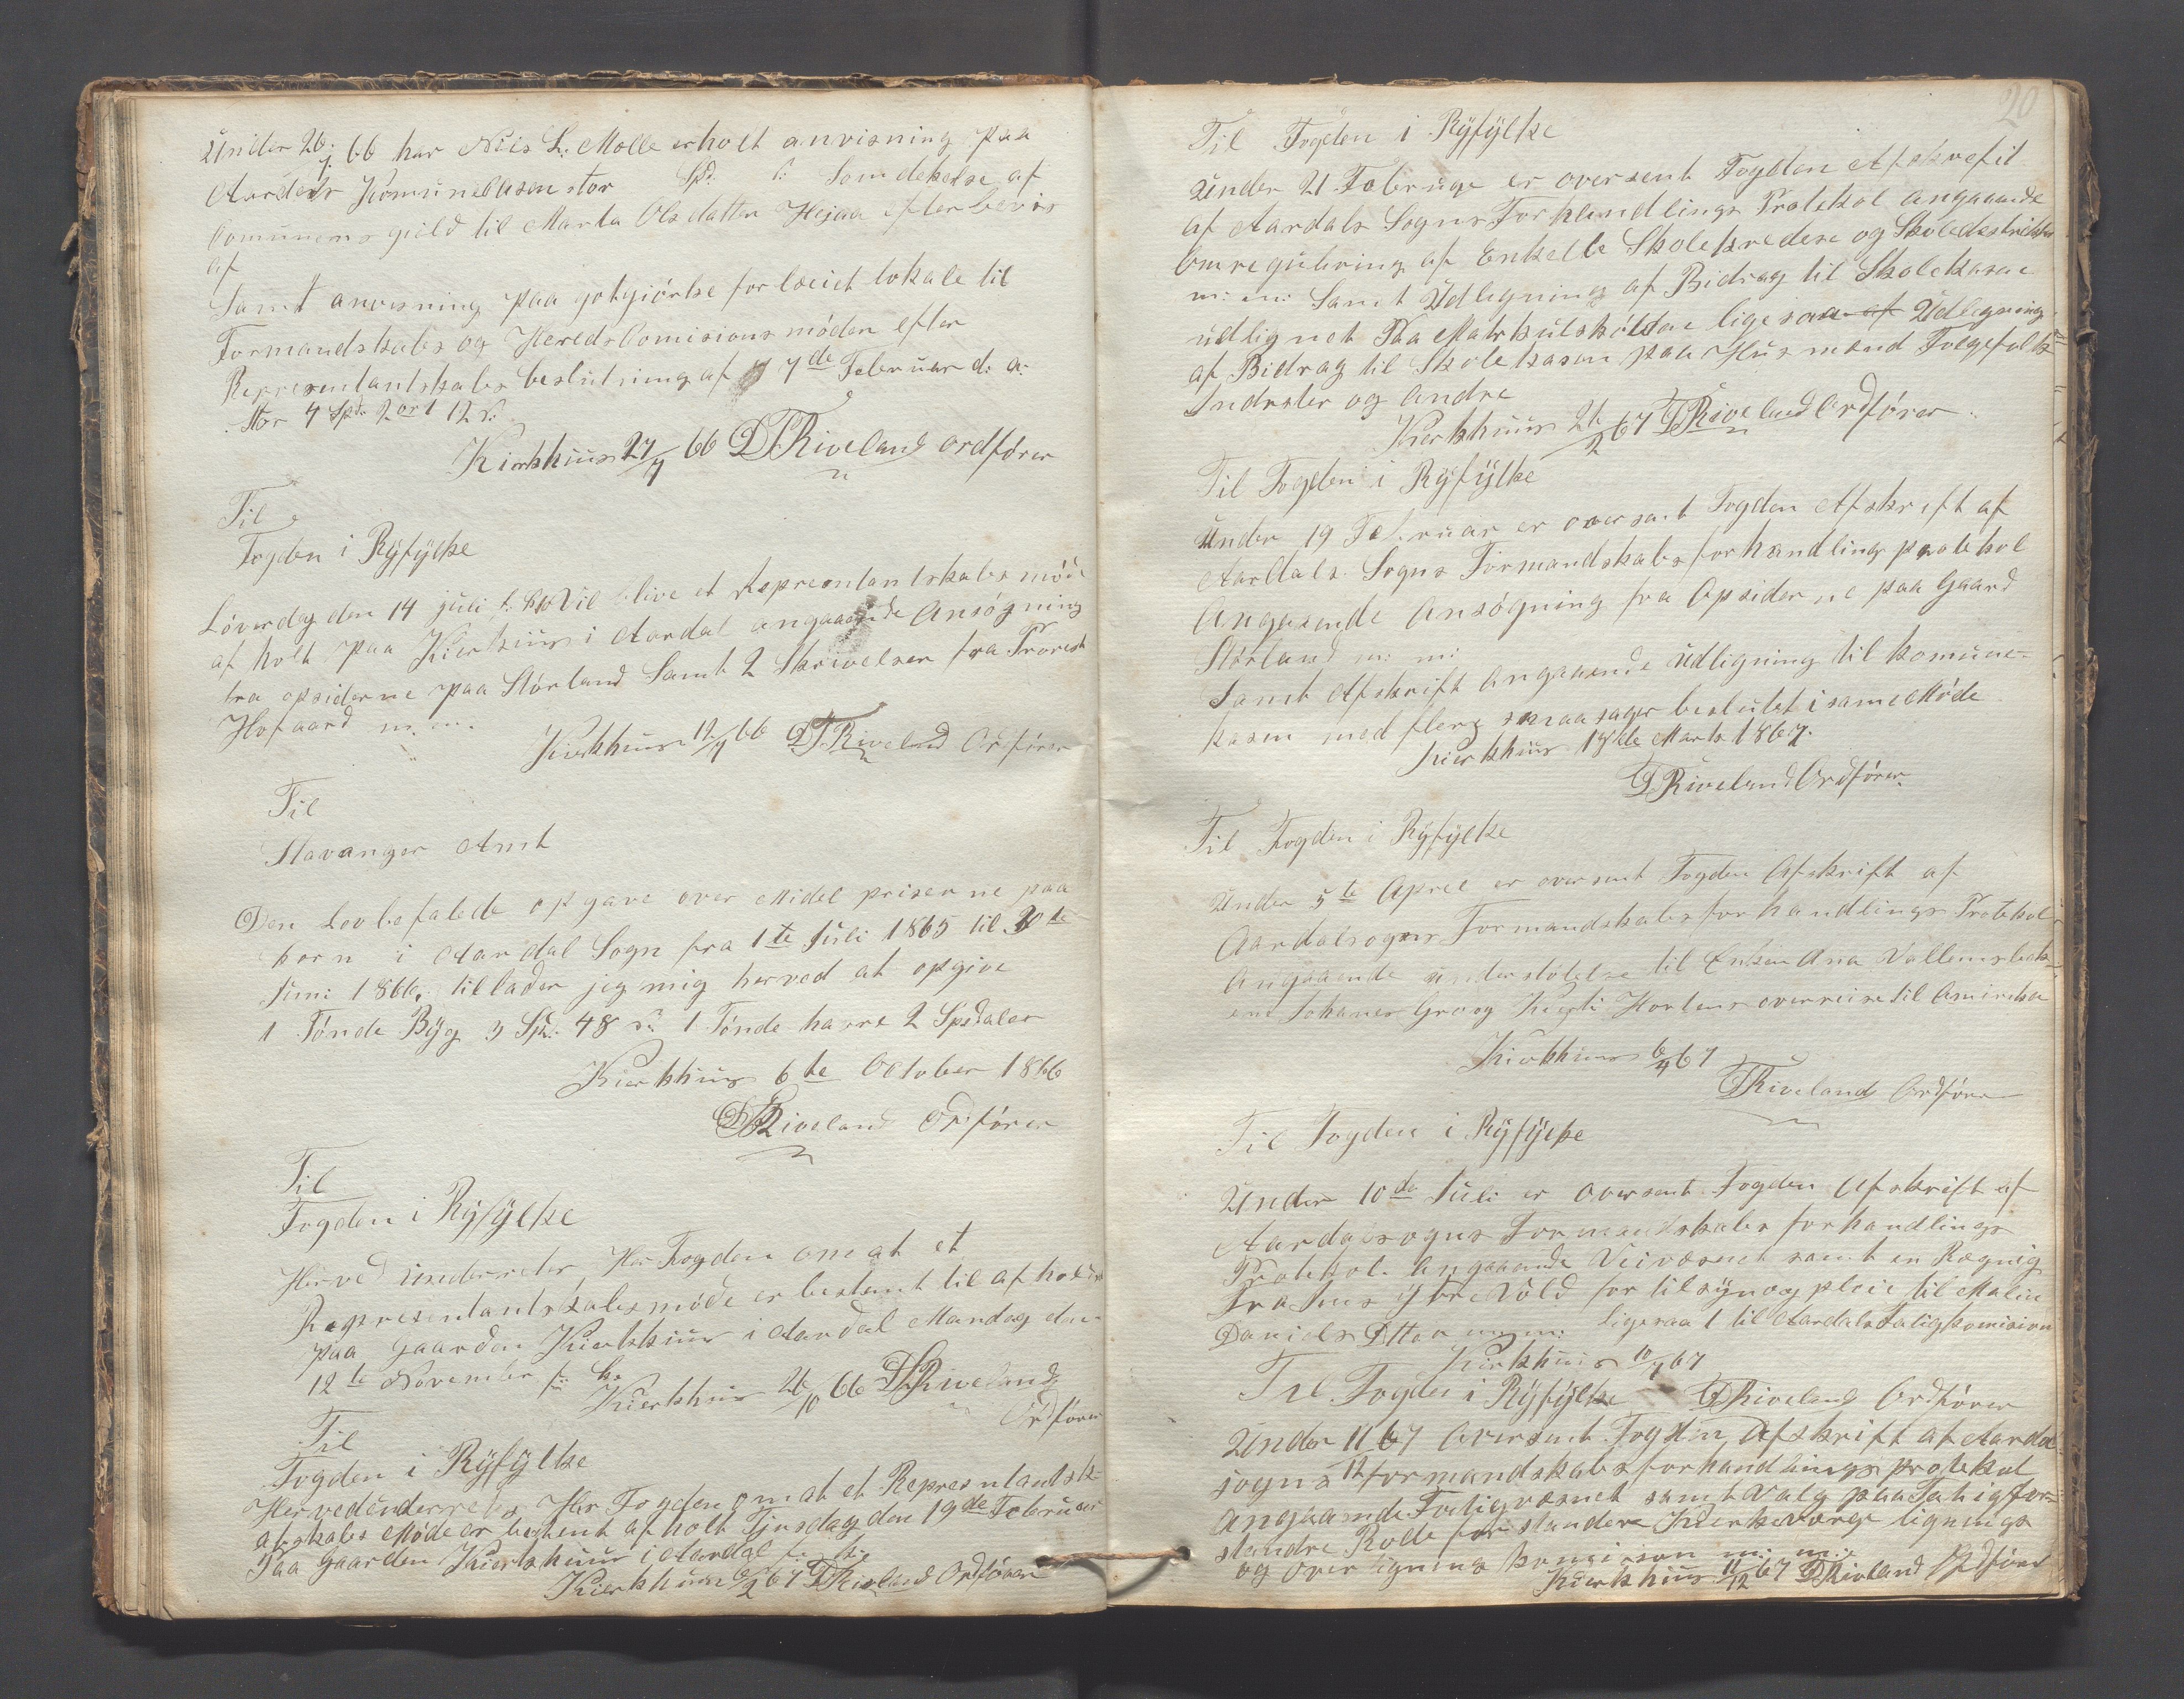 Under 26/7 66 har Niis L: Molle erholt anvisning paa
Aardals Komunekasen stor Spd. s: Som dekelse af
Comunens gield til Marta Olsdatter Hejaa efter bevis
af
Samt anvisning paa gotgiörlse for leiet lokale til
Formandskabs og HeredsComisions möder efter
Representantskabs beslutning af 7de Februar d: a:
stor 4 Spd. 2 ort 12 s:
Kirkhuus 27/7 66 DTRiveland ordförer
Til
Fogden i Ryfylke
Löverdag den 14 juli f: k: Vil blive et Representantskabs möde
af holt paa Kierkhuus i Aardal angaaende Ansögning
fra opsiderne paa Störland Samt 2 Skrivelser fra Provest
Hofgaard m. m.
Kierkhuus 12/7 66 DTRiveland Ordförer
Til
Stavanger Amt
Den Lovbefalede opgave over Midel priserne paa
korn i Aardal Sogn fra 1te Juli 1865 til 30te
Juni 1866, tillader jeg mig herved at opgive
1 Tönde Byg 3 Spd. 48 s: 1 Tönde havre 2 Spsdaler
Kierkhuus 6te October 1866
DTRiveland Ordförer
Til
Fogden i Ryfylke
Herved underreter Her Fogden om at et
Representantskabs möde er bestemt til af holdes
paa gaarden Kierkhuus i Aardal Mandag den
12te November f: k:
Kierkhuus 26/10 66 DTRiveland
Ordförer
Til
Fogden i Ryfylke
Herved underretes Her Fogden om at et Representantsk-
abskabs Möde er bestemt af holt Tirsdag den 19de Februar
Paa Gaarden Kierkhuus i Aardal f: k:
Kierkhuus /2 67 DTRiveland Ordförer
20
Til Fogden i Ryfylke
Under 21 Februar er oversent Fogden Afskreft
af Aardals Sogns Forhandlings Protokol angaaende
Omregulering af Enkelte Skolekredse og Skoledestrikter
m: m: Samt Udligning af Bidrag til Skolekasen
udlignet Paa Matrkulskölden ligesaa af Udlegning
af Bidrag til Skolekasen paa Husmænd Folgefolk
Indrster og Andre
Kierkhuus 21/2 67 DTRiveland Ordförer
Til Fogden i Ryfylke
Under 19 Februar er oversent Fogden Afskrift af
Aardals Sogns Formandskabs forhandlings protokol
Angaaende Ansögning fra Opsiderne paa Gaard
Störland m: m:
Samt Afskrift Angaaende Udligning til komune-
kasen med flere smaa sager besluttet i same Möde
Kierkhuus 18de Marts 1867.
DTRiveland Ordförer
Til Fogden i Ryfylke
Under 5te Apreil er oversent Fogden Afskrift af
Aardalsogns Formandskabs forhandlings Protokol
Angaaende understötelse til Enken Ana Vallemsbak-
en Johanes Gro og Kirsti Hortens overreise til Amirika
Kierkhuus 6/4 67
DTRiveland Ordförer
Til Fogden i Ryfylke
Under 10de Juli er Oversent Fogden Afskrift af
Aardalsogns Formandskabs forhandlings
Protokol Angaaende Veivæsnet samt en Regnig
Fra Jens Ytre Vold for tilsyn og pleie til Malin
Daniels Dtter m: m: ligesaa 1 til Aardals Fatigkomision
Kierkhuus 10/7 67
Til Fogden i Ryfylke DTRiveland Ordförer
Under 11/12 67 Oversent Fogden Afskrift af Aardal
sogns formandskabs forhandlings protokol
Angaaende Fatigvæsnet samt Valg paa Fatigfor-
standre Rode forstandere Kierkeværge lignings
og over ligning komision m: m:
Kierkhuus 11/12 67 DTRiveland Ordförer